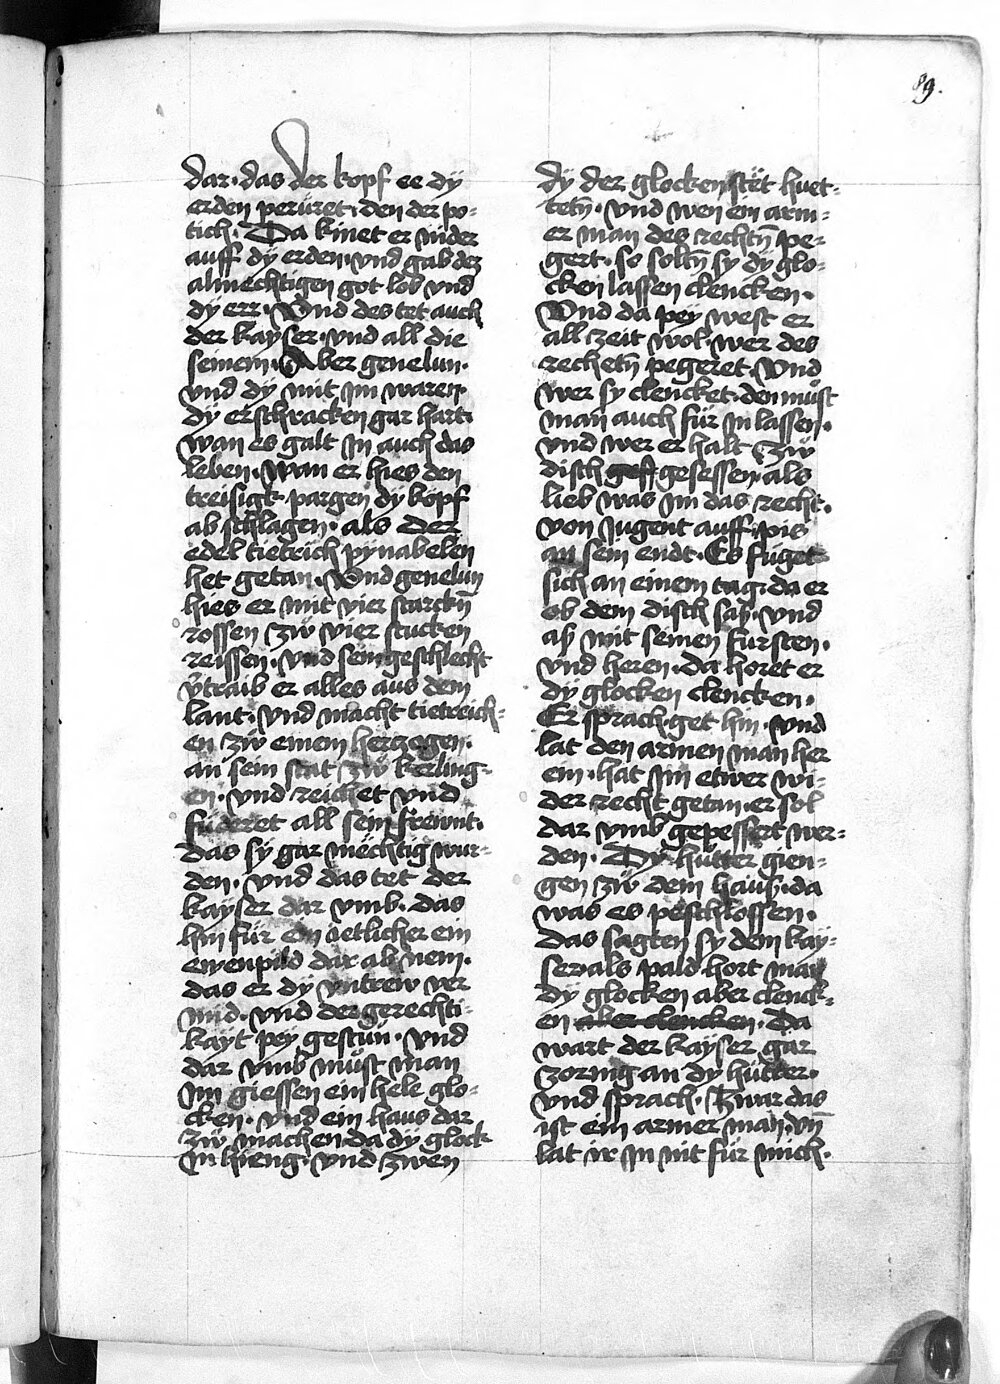 89.
dar. das der kopf ee dÿ
erden perüret. den der po-
tich. Da kniet er nider
auff dÿ erden. vnd gab dez
almechtigen got lob vnd
dÿ err. Vnd des tet auch
der kayser. vnd all die
seinem. Aber genelun.
vnd dÿ mit im waren.
dÿ erschracken gar hart.
wan es galt in auch das
leben. wan er hies den
treisigk pargen dÿ köpf
ab schlagen. als der
edel tietrich pynabelen
het getan. Vnd genelun
hies er mit vier starckn̄
rossen zw vier stucken
reissen. vnd sein geschlecht
v̈traib er alles aus dem
lant. vnd macht tietreich-
en zw einem herczogen.
an sein stat zw kerling-
en. vnd reichet vnd
füderet all sein frewnt.
das sÿ gar mëchtig wur-
den. vnd das tet der
kayser dar vmb. das
hin für ein ietlicher ein
ewenpild dar ab nem.
das er dÿ vntrew ver
mid. vnd der gerechti-
kayt peÿ gestün. vnd
dar vmb müst man
im giessen ein hele glo-
cken. vnd ein haus dar
zw machen da dÿ glock
in hieng. vnd zwen
dÿ der glocken stët huet-
tetn̄. vnd wen ein arm-
er man des rechtn̄ pe-
gert. so soltn̄ sy dÿ glo-
cken lassen clencken.
Vnd da pey west er
all zeit wol. wer des
rechetn̄ pegeret. Vnd
wer sy clencket. den müst
man auch für in lassen.
vnd wer er halt zw
disch gesessen. als
lieb was im das recht.
von iugent auff. pis
an sein endt. Es füget
sich an einem tag. da er
ob dem disch sas. vnd
as mit seinen fursten.
vnd heren. da horet er
dÿ glocken clencken.
Er sprach. get hin. vnd
lat den armen man her
ein. hat im etwer wi-
der recht getan. er sol
dar vmb gepessert wer-
den. Dÿ hütter gien-
gen zw dem haus. da
was es peschlossen.
das sagten sy dem kay-
ser. als pald hort man
dÿ glocken aber clenck-
en aber clencken. Da
wart der kayser gar
zornig an dÿ hütter.
vnd sprach. Zwar das
ist ein armer man. vn̄
lat ir in nit für mich.